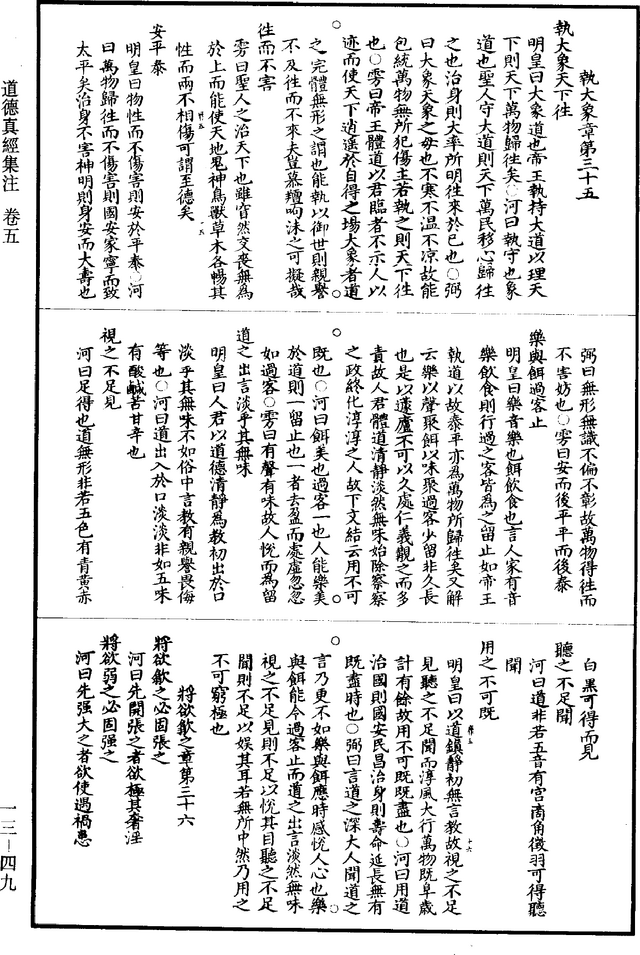 道德真經集注　卷五
一三－四九
執大象章第三十五
執大象天下徃
明皇曰大象道也帝王執持大道以理天
下則天下萬物歸徃矣○河曰執守也象
道也聖人守大道則天下萬民移心歸徃
之也治身則大率所明徃來於已也○弼
曰大象天象之母也不寒不温不凉故能
包統萬物無所犯傷主若執之則天下徃
也○雱曰帝王體道以君臨者不示人以
迹而使天下逍遥於自得之場大象者道
之完體無形之謂也能執以御世則親譽
不及徃而不來夫豈慕羶呴沫之可擬哉
徃而不害
雱曰聖人之治天下也雖窅然交喪無爲
於上而能使天地鬼神鳥獸草木各暢其
性而兩不相傷可謂至德矣
安平泰
明皇曰物性而不傷害則安於平泰○河
曰萬物歸徃而不傷害則國安家寧而致
太平矣治身不害神明則身安而大壽也
弼曰無形無識不偏不彰故萬物得徃而
不害妨也○雱曰安而後平平而後泰
樂與餌過客止
明皇曰樂音樂也餌飲食也言人家有音
樂飲食則行過之客皆爲之留止如帝王
執道以故泰平亦爲萬物所歸徃矣又解
云樂以聲聚餌以味聚過客少留非久長
也是以蘧廬不可以久處仁義覯之而多
責故人君體道清靜淡然無味始除察察
之政終化淳淳之人故下文結云用不可
既也○河曰餌美也過客一也人能樂美
於道則一留止也一者去盈而處虚忽忽
如過客○雱曰有聲有味故人恱而爲留
道之出言淡乎其無味
明皇曰人君以道德清靜爲教初出於口
淡乎其無味不如俗中言教有親譽畏侮
等也○河曰道出入於口淡淡非如五味
有酸鹹苦甘辛也
視之不足見
河曰足得也道無形非若五色有青黃赤
白黑可得而見
聽之不足聞
河曰道非若五音有宫商角徵羽可得聽
聞
用之不可既
明皇曰以道鎮靜初無言教故視之不足
見聽之不足聞而淳風大行萬物既阜歲
計有餘故用不可既既盡也○河曰用道
治國則國安民昌治身則壽命延長無有
既盡時也○弼曰言道之深大人聞道之
言乃更不如樂與餌應時感恱人心也樂
與餌能令過客止而道之出言淡然無味
視之不足見則不足以恱其目聽之不足
聞則不足以娱其耳若無所中然乃用之
不可窮極也
將欲歙之章第三十六
將欲歙之必固張之
河曰先開張之者欲極其奢淫
將欲弱之必固强之
河曰先强大之者欲使遇禍患